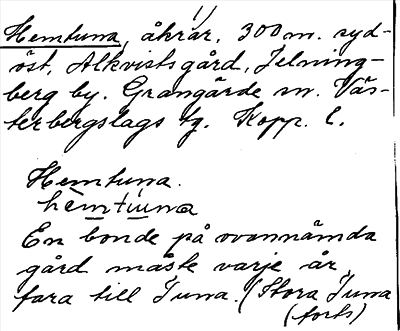 1/
Hemtuna, åkrar, 300 m. syd-
öst, Alkvists gård, Jelning-
berg by. Grangärde sn. Väs-
terbergslags tg. Kopp. l.
Hemtuna.
hèmtu̇na
En bonde på ovannämda
gård måste varje år
fara till Tuna. (Stora Tuna
(forts)